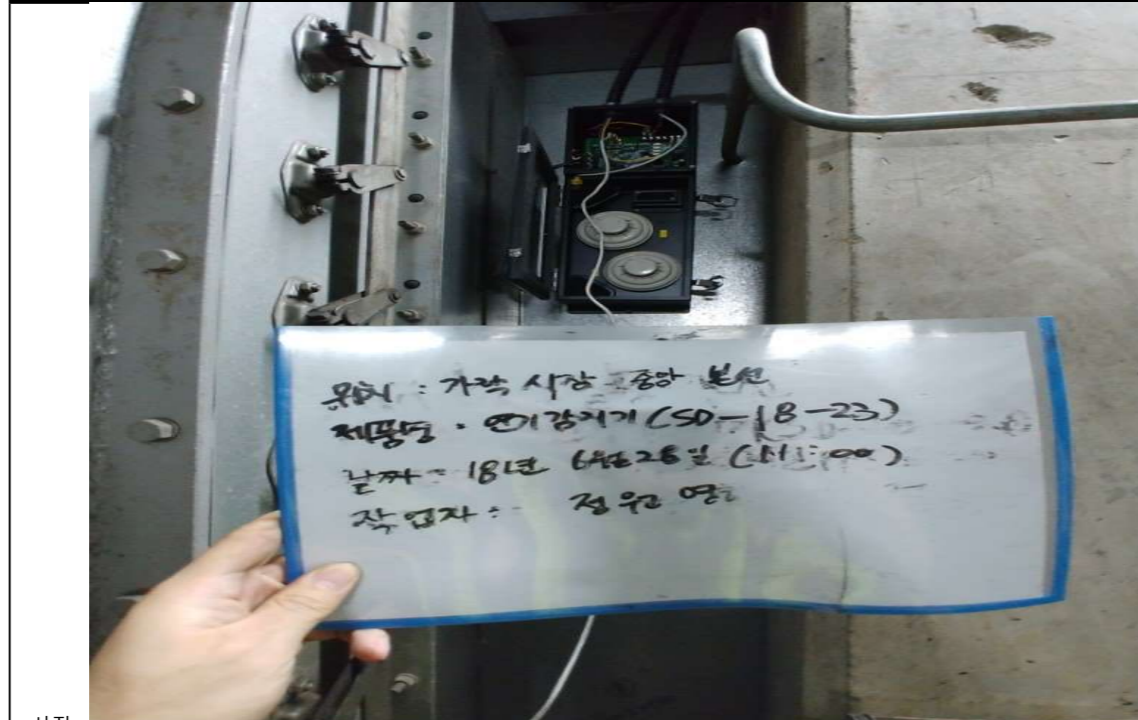 위치 : 가락 시장 중앙 본선
제품명 : 연기감지기 (SD-18-23)
날짜 : 18년 6월 28일 (11:00)
작업자 : 정원영